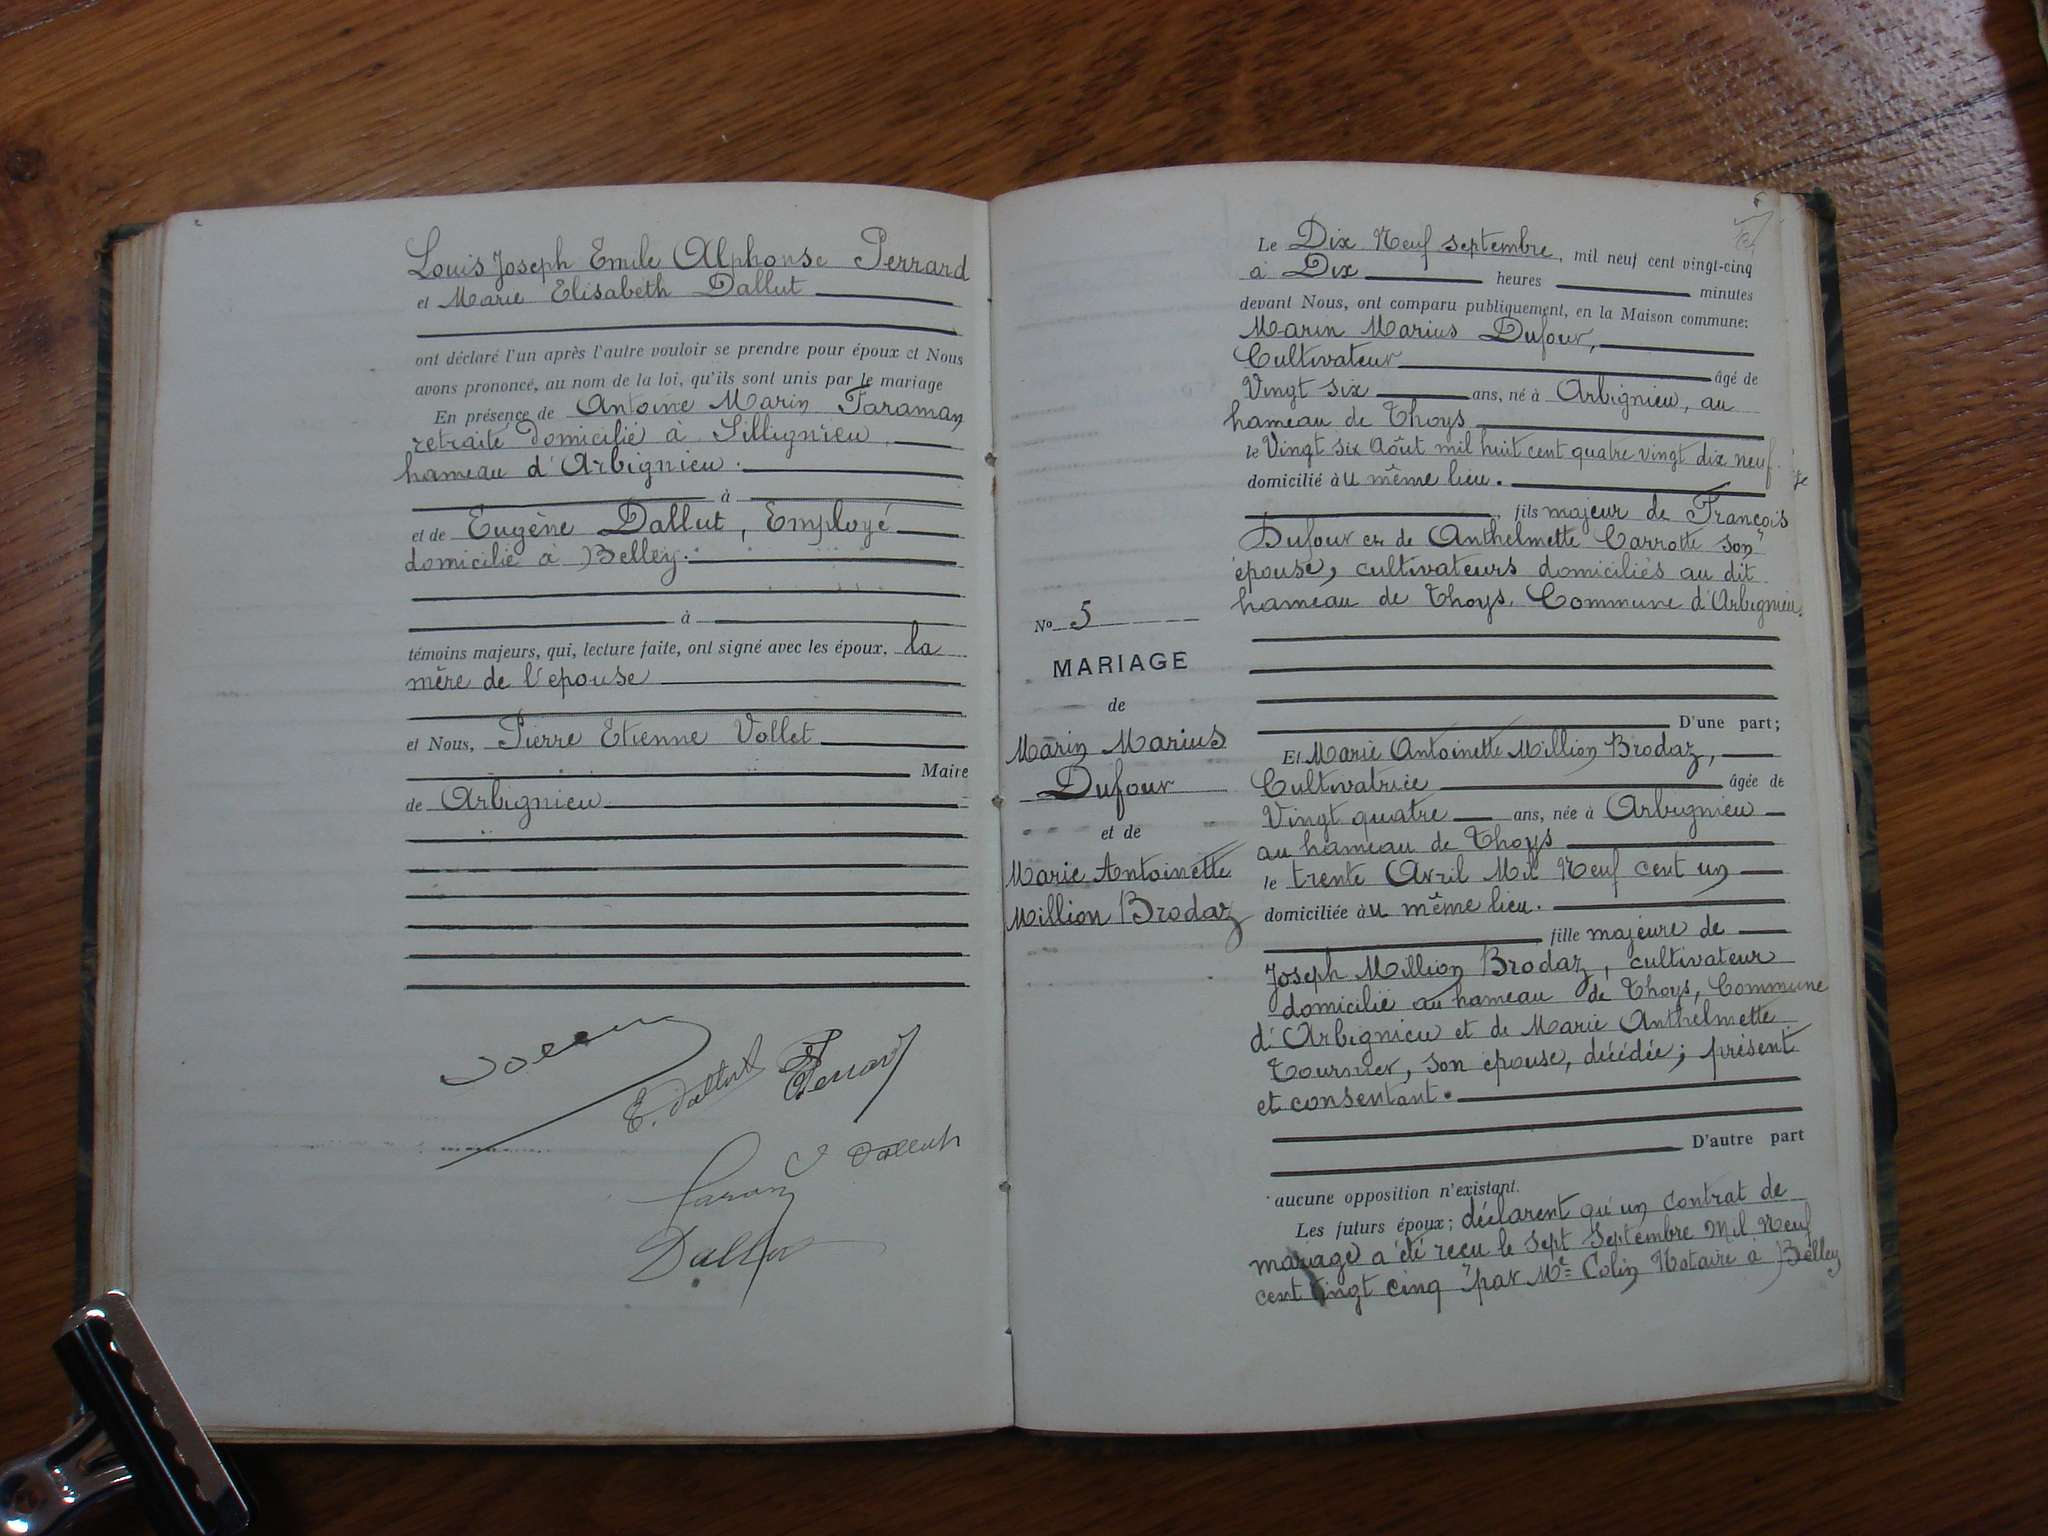 Louis Joseph Emile Alphonse Perrard
et Marie Elisabeth Dallut
ont déclaré l'un après l'autre vouloir se prendre pour époux et Nous
avons prononcé, au nom de la loi, qu'ils sont unis par le mariage
En présence de Antoine Marin Faraman
retraité domicilié à Sillignieu
hameau d'Arbignieu.
à
et de Eugène Dallut, Employé
domicilié à Belley.
à
témoins majeurs, qui, lecture faite, ont signé avec les époux, la
mère de l'épouse
et Nous, Pierre Etienne Vollet
Maire
de Arbignieu
E. Dallut
Perrard
Dallut
Dallut
Le Dix Neuf septembre, mil neuf cent vingt-cinq
à Dix heures minutes
devant Nous, ont comparu publiquement, en la Maison commune:
Marin Marius Dufour,
Cultivateur âgé de
Vingt six ans, né à Arbignieu, au
hameau de Thoys
le Vingt six Août mil huit cent quatre vingt dix neuf.
domicilié àu même lieu.
, fils majeur de François
Dufour et de Anthelmette Carrotte son
épouse, cultivateurs domiciliés au dit
hameau de Thoys, Commune d'Arbignieu.
D'une part;
No 5
MARIAGE
de
Marin Marius
Dufour
et de
Marie Antoinette
Million Brodaz
Et Marie Antoinette Million Brodaz,
Cultivatrice âgée de
Vingt quatre ans, née à Arbignieu
au hameau de Thoys
le trente Avril Mil Neuf cent un
domiciliée àu même lieu.
fille majeure de
Joseph Million Brodaz, cultivateur
domicilié au hameau de Thoys, Commune
d'Arbignieu et de Marie Anthelmette
Tournier, son épouse, décédée; présent
et consentant.
D'autre part
aucune opposition n'existant.
Les futurs époux; déclarent qu'un contrat de
mariage a été reçu le sept Septembre Mil Neuf
cent vingt cinq par Me Colin Notaire à Belley